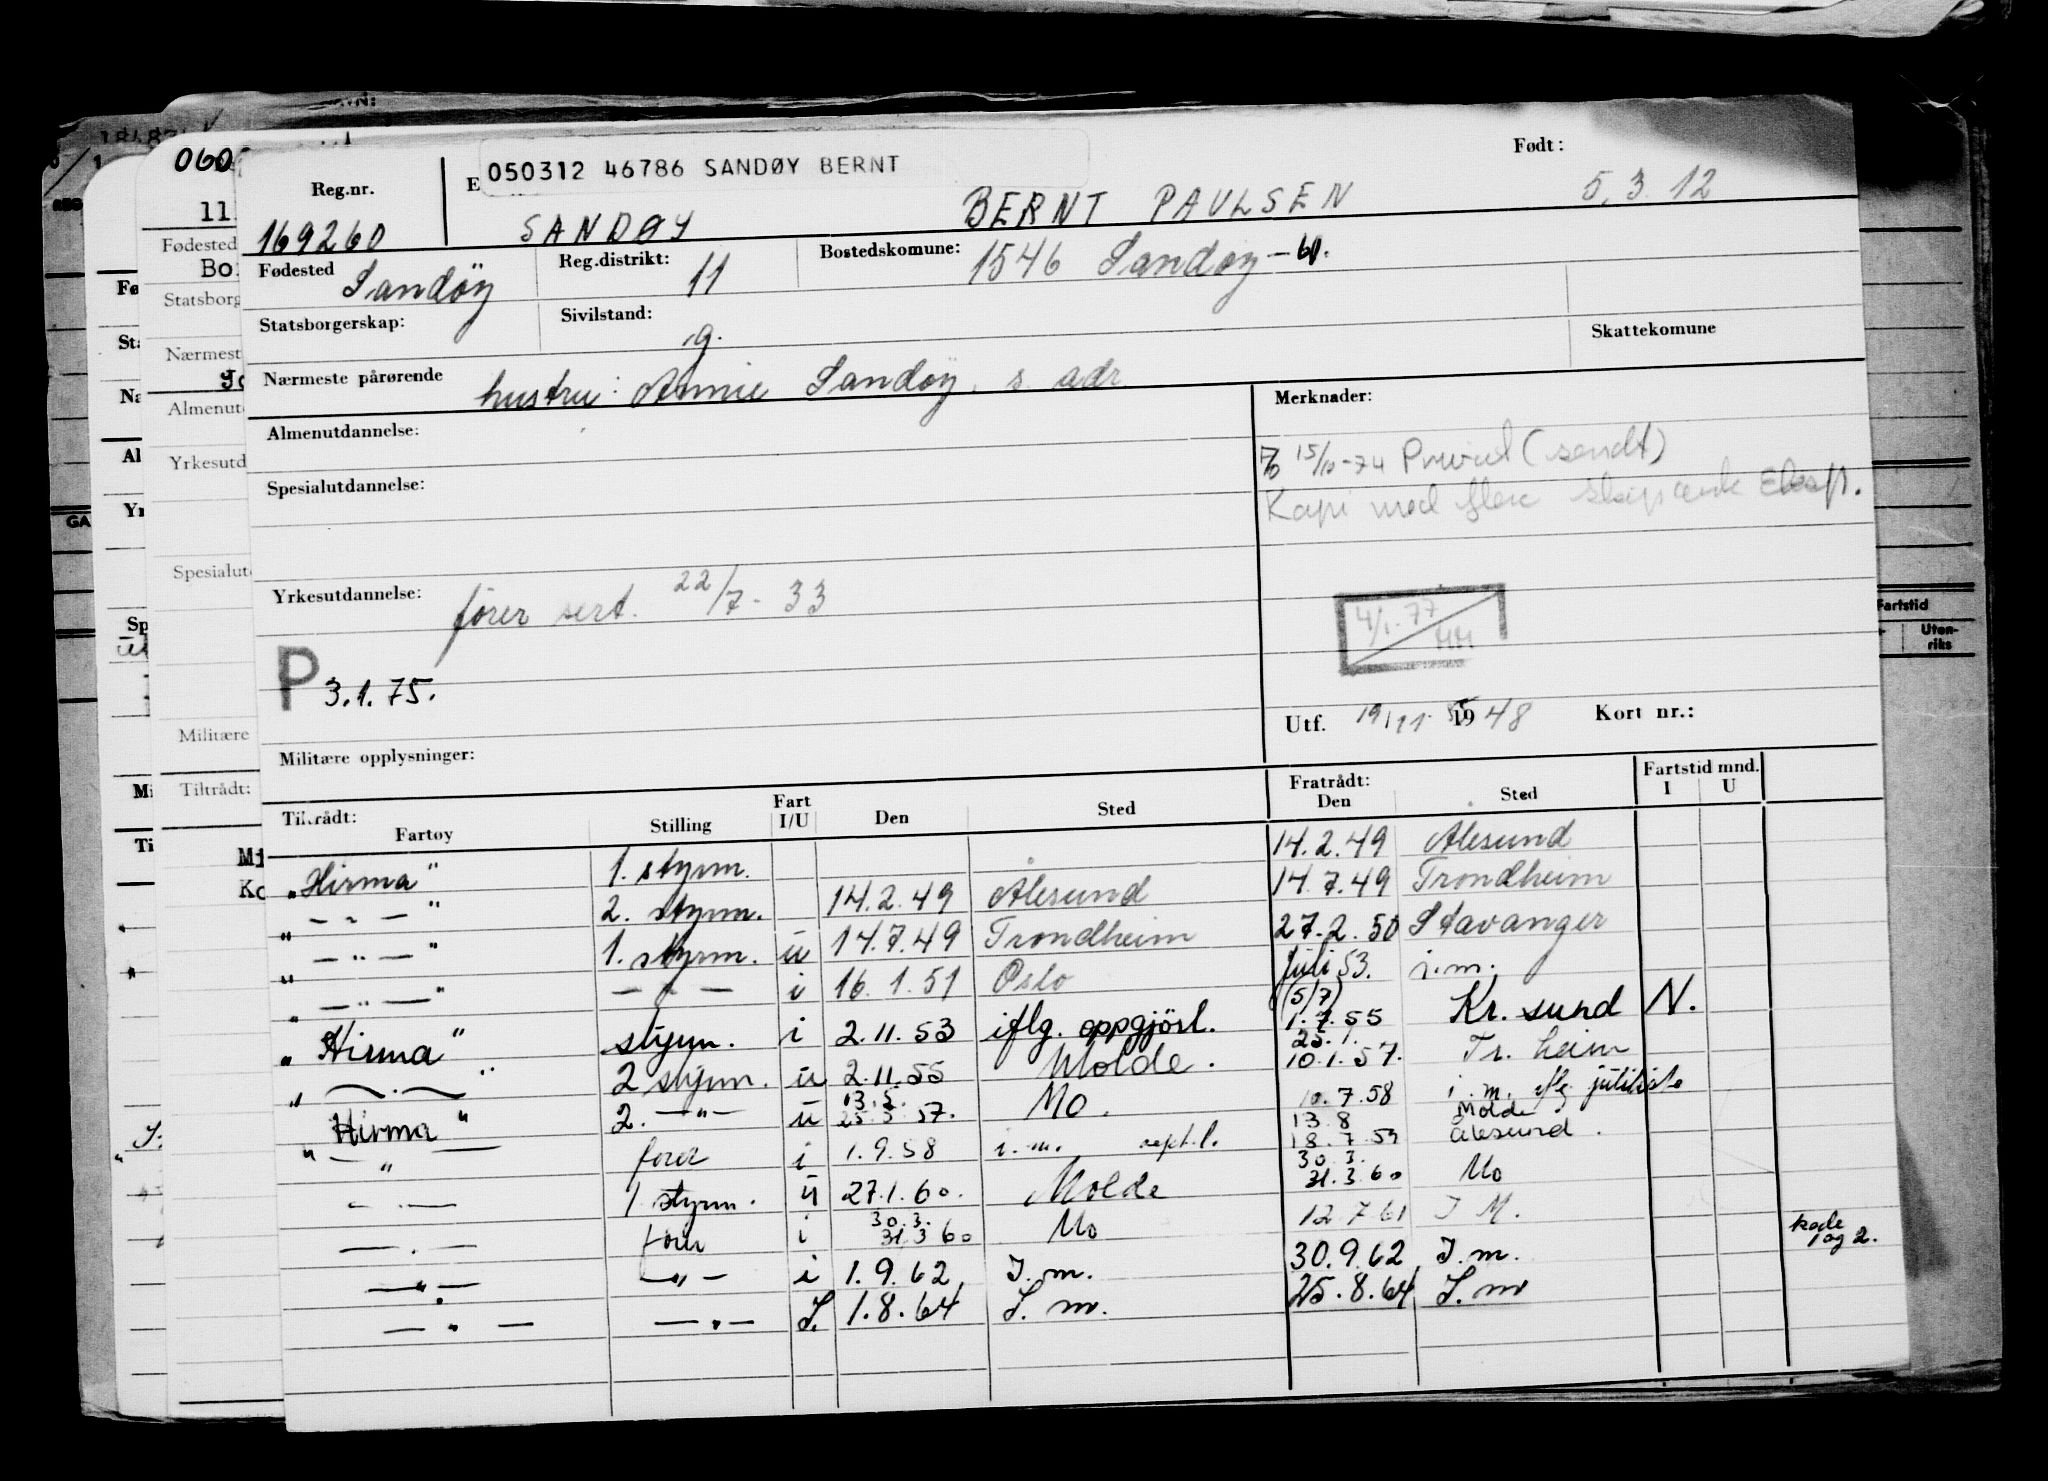 050312 46786 SANDØY BERNT
Født:
Reg.nr.
BERNT PAULSEN 5.3.12
169260 SANDØY
Fødested Sandöy Reg.distrikt: 11 Bostedskomune: 1546 Sandøy - 61.
Statsborgerskap: Sivilstand: g. Skattekomune
Nærmeste pårørende hustru: Annie Sandöy, s. adr
Almenutdannelse: Merknader:
15/10-74 (sendt)
Spesialutdannelse: Kopi med flere Eksp.
Yrkesutdannelse: fører sert. 22/7-33
4/1.77
HH
P 3.1.75.
Utf. 19/11 1948 Kort nr.:
Militære opplysninger:
Tiltrådt: Fratrådt: Fartstid mnd.
Fartøy Stilling Fart I/U Den Sted Den Sted I U
"Hirma" 1. styrm. 14.2.49 Ålesund
" - " - " 2. styrm. 14.2.49 Ålesund 14.7.49 Trondheim
" - " - " 1. styrm. u 14.7.49 Trondheim 27.2.50 Stavanger
" - " - " - " - i 16.1.51 Oslo juli 53. i.m.
"Hirma" styrm. i 2.11.53 iflg. oppgjörl. (5/7) 1.7.55 Kr. sund N.
" - . - " 2 styrm. u 2.11.55 Molde. 25.1. 10.1.57. Tr. heim
"Hirma" 2. - " - u 13.5. 25.5.57. Mo. 10.7.58 i.m. iflg juliliste
- " - fører i 1.9.58 i.m. sept.l. 13.8 18.7.59 Molde Ålesund.
- " - 1 styrm. u 27.1.60. Molde 30.3. 31.3.60 Mo
- " - fører i 30.3. 31.3.60 Mo 12.7.61 I M.
- " - - " - i 1.9.62 I.m. 30.9.62 I.m. kode 1 og 2.
- " - - " - I. 1.8.64 I.m. 25.8.64 I.m
Fartstid
Uten-
riks
060
11
Fødested
Bo
Statsborg
Nærmest
Almenut
Yrkesutd
Spesialut
Militære
Tiltrådt:
Mi
Ko